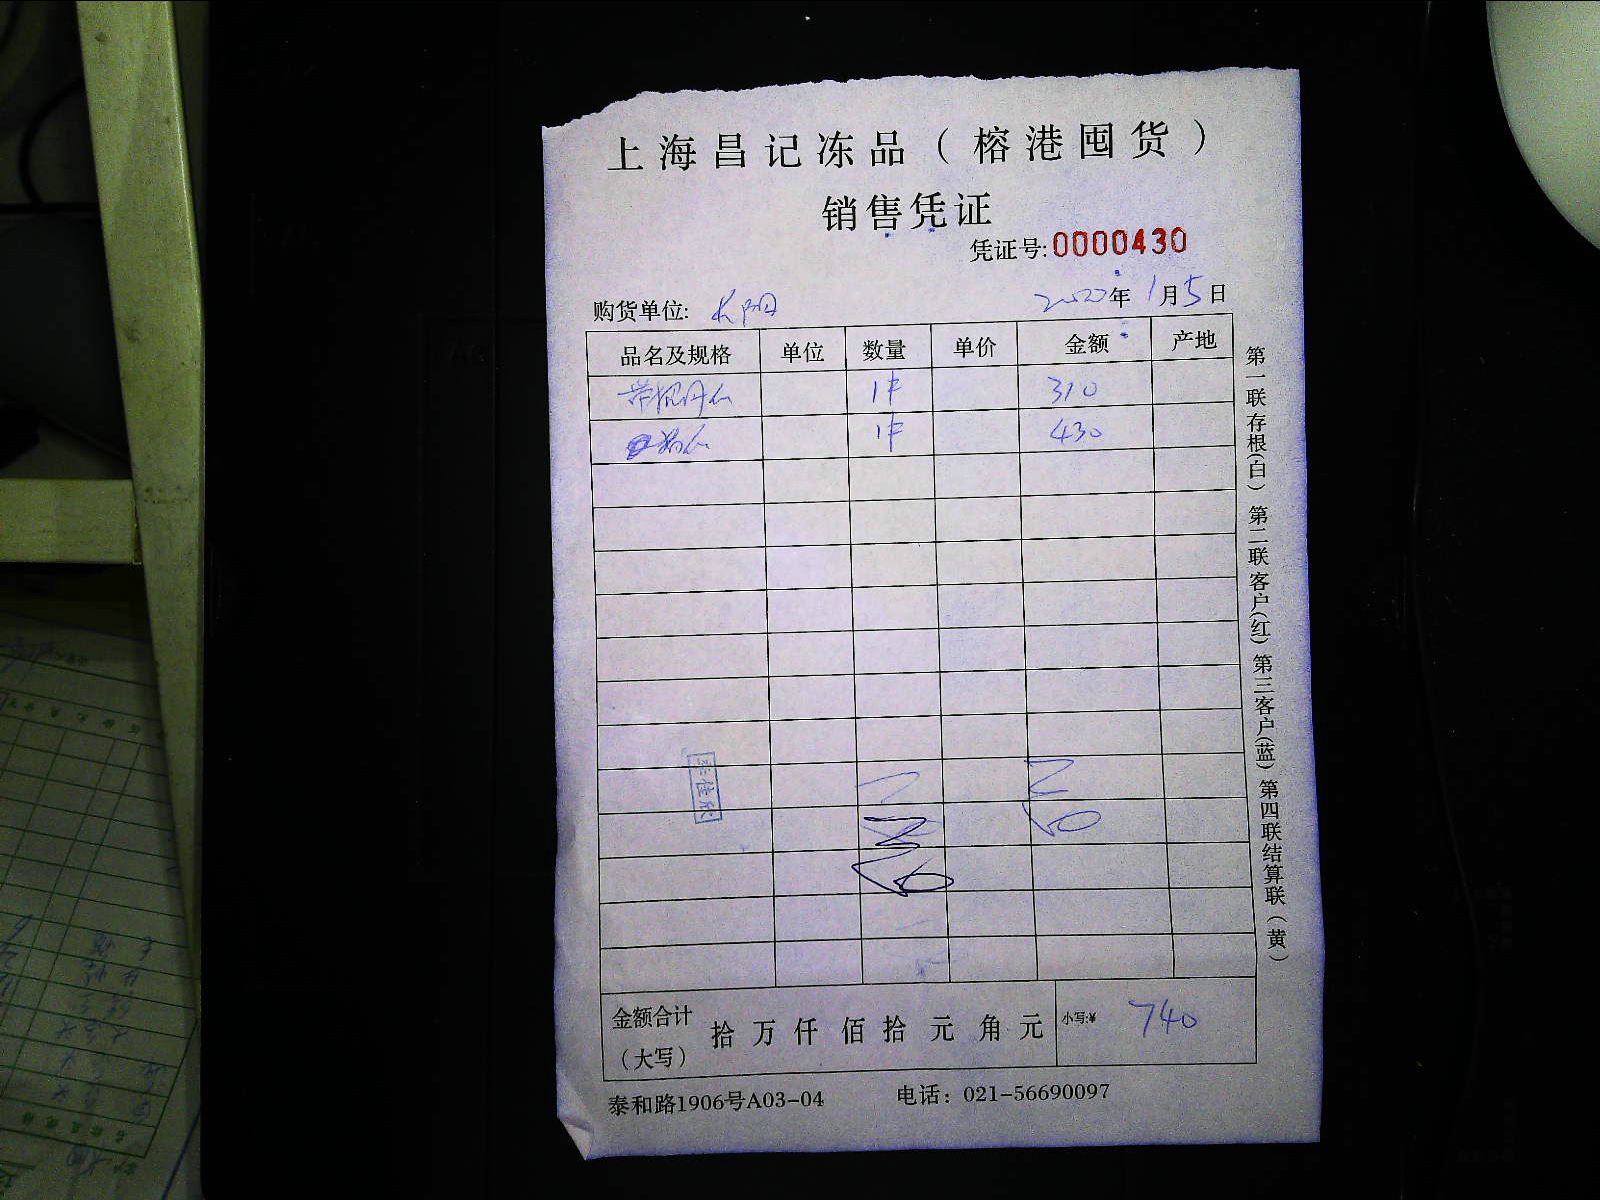 上海昌记冻品（榕港囤货）
销售凭证
凭证号:0000430
购货单位: 长阳 2022年1月5日
品名及规格 单位 数量 单价 金额 产地
1件 310
1件 430
金额合计（大写） 拾 万 仟 佰 拾 元 角 元 小写:¥ 740
泰和路1906号A03-04 电话：021-56690097
第一联存根(白) 第二联客户(红) 第三客户(蓝) 第四联结算联（黄）